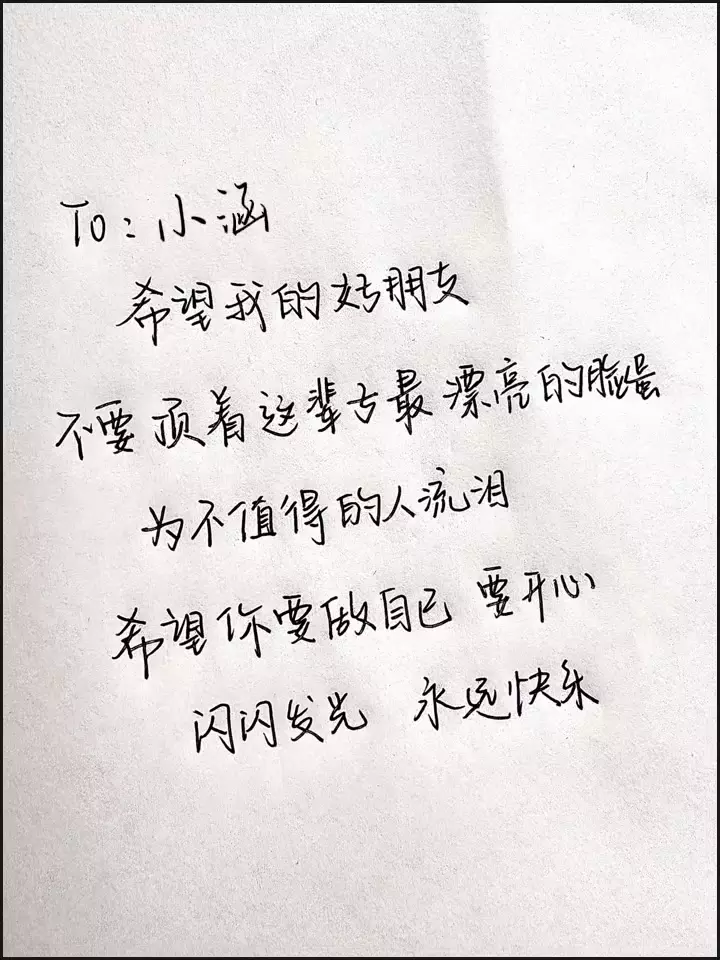 To：小涵
希望我的好朋友
不要顶着这辈子最漂亮的脸蛋
为不值得的人流泪
希望你要做自己 要开心
闪闪发光 永远快乐